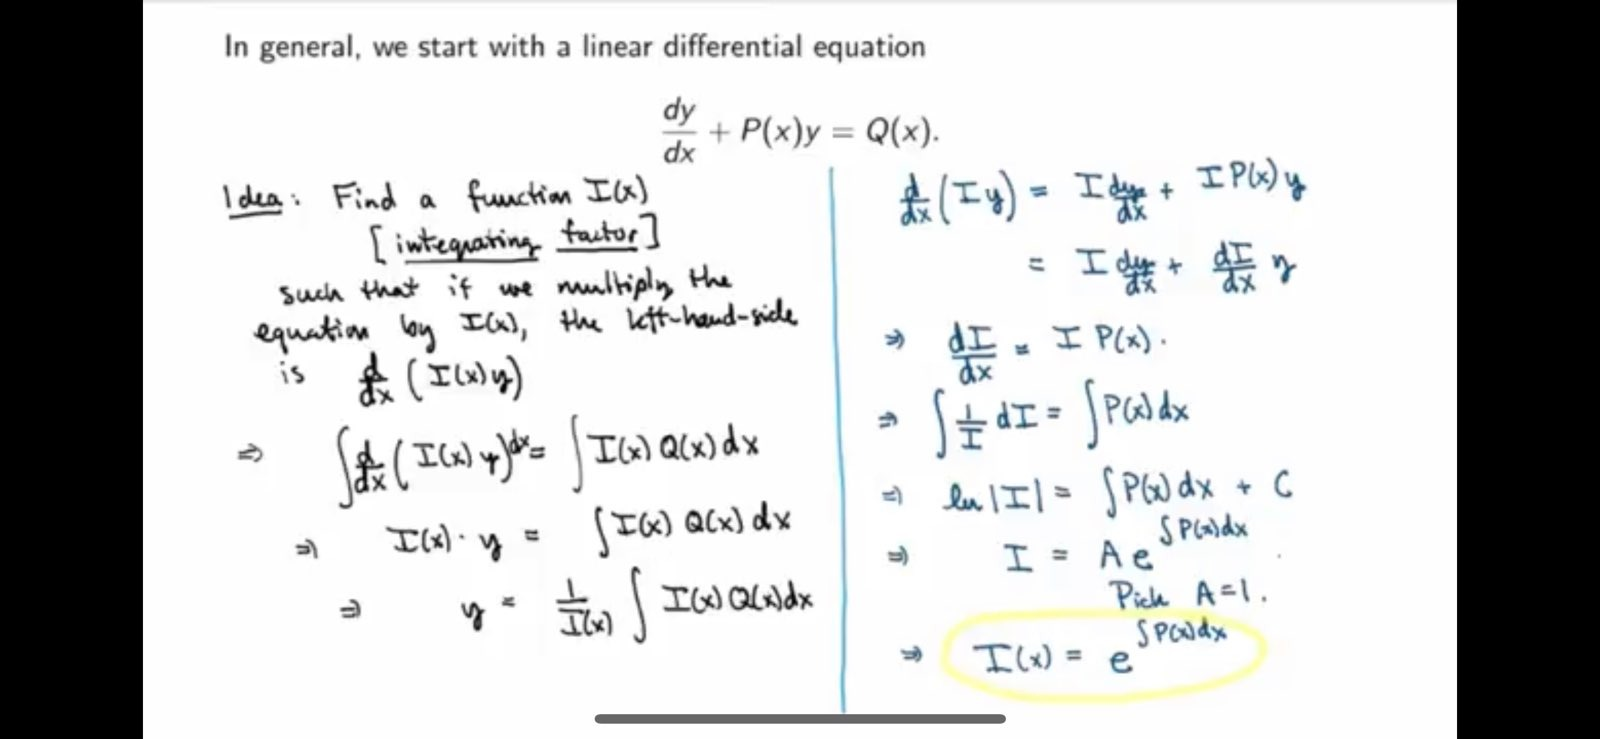 In general, we start with a linear differential equation
dy/dx + P(x)y = Q(x).
Idea: Find a function I(x)
[integrating factor]
such that if we multiply the
equation by I(x), the left-hand-side
is d/dx (I(x)y)
⇒ ∫ d/dx (I(x) y) dx = ∫ I(x) Q(x) dx
⇒ I(x) · y = ∫ I(x) Q(x) dx
⇒ y = 1/I(x) ∫ I(x) Q(x) dx
d/dx (Iy) = I dy/dx + I P(x) y
= I dy/dx + dI/dx y
⇒ dI/dx = I P(x).
⇒ ∫ 1/I dI = ∫ P(x) dx
⇒ ln |I| = ∫ P(x) dx + C
⇒ I = A e^∫P(x)dx
Pick A=1.
⇒ I(x) = e^∫P(x)dx